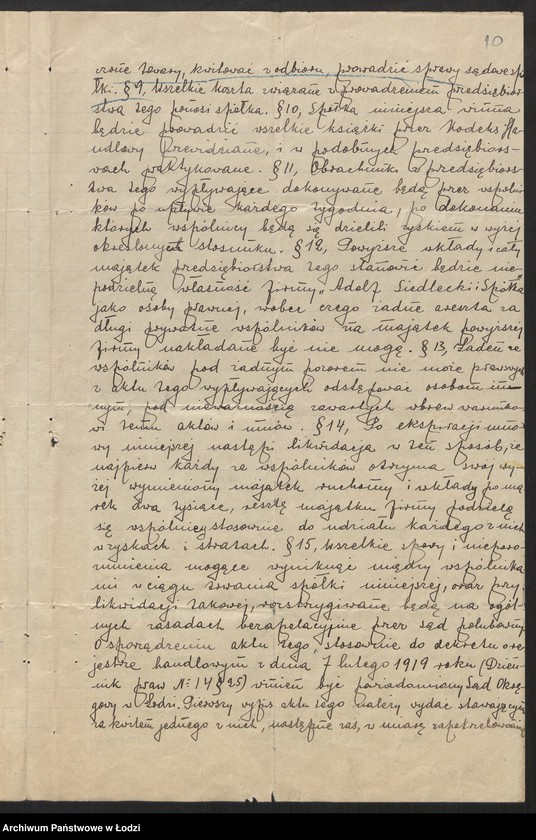 10
czone towary, kwitować z odbioru, prowadzić sprawy sądowe spó
łki. § 9, Wszelkie koszta związane z prowadzeniem przedsiębior-
stwa tego ponosi spółka. § 10, Spółka niniejsza winna
będzie prowadzić wszelkie książki przez Kodeks Ha-
ndlowy Przewidziane, i w podobnych przedsiębiors-
twach praktykowane. § 11, Obrachunki z przedsiębiors-
twa tego wypływające dokonywane będą przez wspólni-
ków po upływie każdego tygodnia, po dokonaniu
których wspólnicy będą się dzielili zyskiem w wyżej
określonych stosunku. § 12, Powyższe wkłady i cały
majątek przedsiębiorstwa tego stanowić będzie nie-
podzielną własność firmy „Adolf Siedlecki i Spółka"
jako osoby prawnej, wobec czego żadne areszta za
długi prywatne wspólników na majątek powyższej
firmy nakładane być nie mogą. § 13, Żaden ze
wspólników pod żadnym pozorem nie może praw swych
z aktu tego wypływających odstępować osobom in-
nym, pod nieważnością zawartych wbrew warunko-
wi temu aktów i umów. § 14, Po ekspiracji umo-
wy niniejszej nastąpi likwidacja w ten sposób, że
najpierw każdy ze wspólników otrzyma swój wy-
żej wymieniony majątek ruchomy i wkłady po ma-
rek dwa tysiące, resztę majątku firmy podzielą
się wspólnicy stosownie do udziału każdego z nich
w zyskach i stratach. § 15, Wszelkie spory i nieporo-
zumienia mogące wyniknąć między wspólnika-
mi w ciągu trwania spółki niniejszej, oraz przy
likwidacji takowej, rozstrzygiwane będą na ogól-
nych zasadach bezapelacyjnie przez sąd polubowny
O sporządzeniu aktu tego, stosownie do dekretu o re-
jestrze handlowym z dnia 7 lutego 1919 roku (Dzien-
nik praw № 14 § 25) winien być powiadomiony Sąd Okrę-
gowy w Łodzi. Pierwszy wypis aktu tego należy wydać stawającym
za kwitem jednego z nich, następne zaś, w miarę zapotrzebowania
Archiwum Państwowe w Łodzi